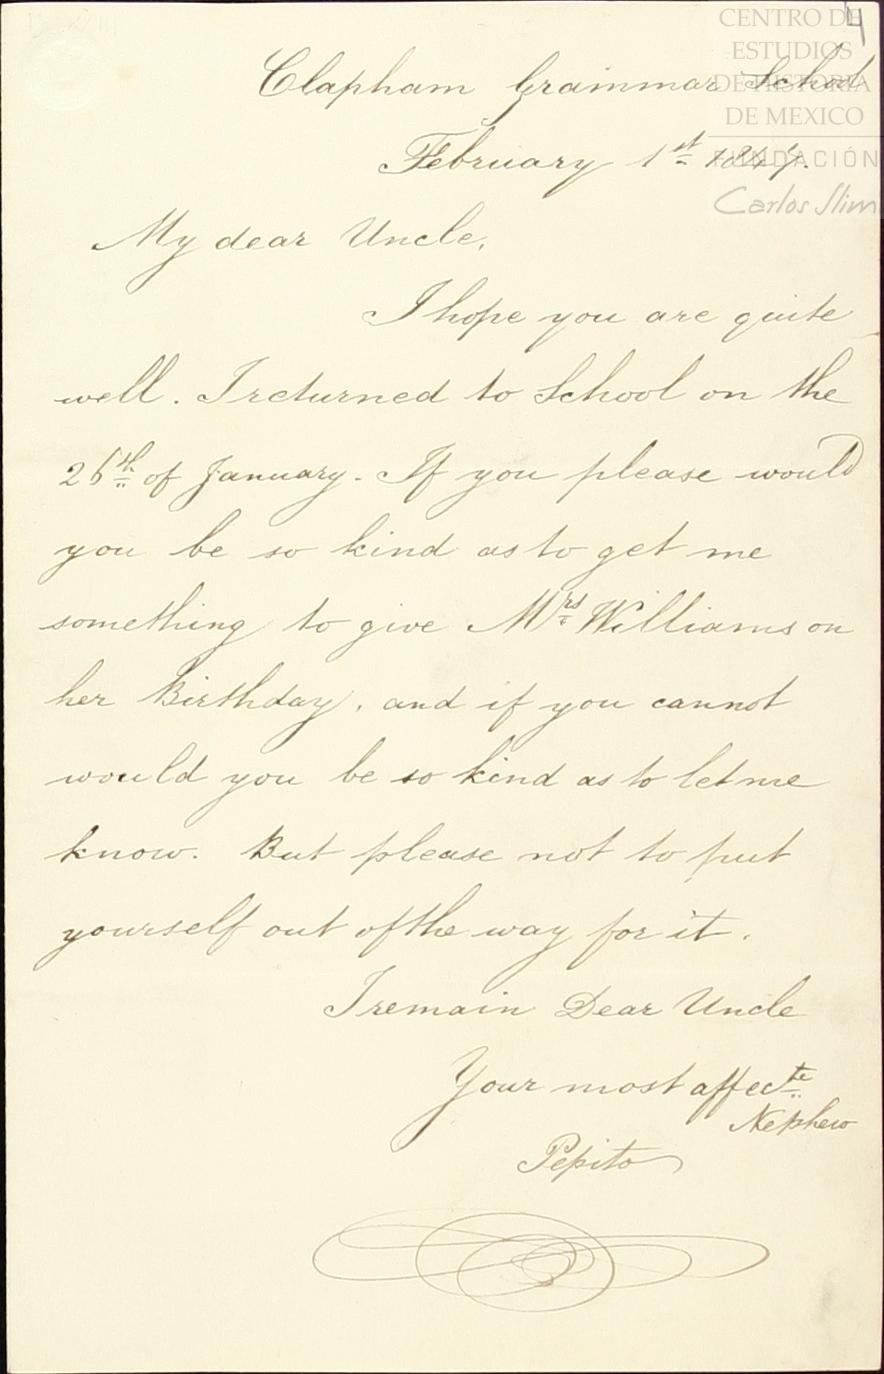 4
CENTRO DE
ESTUDIOS
DE HISTORIA
DE MEXICO
FUNDACIÓN
Carlos Slim
Clapham Grammar School
February 1st
My dear Uncle,
I hope you are quite
well. I returned to School on the
26th of January. If you please would
you be so kind as to get me
something to give Mrs Williams on
her Birthday, and if you cannot
would you be so kind as to let me
know. But please not to put
yourself out of the way for it.
I remain Dear Uncle
Your most affecte
Nephew
Pepito